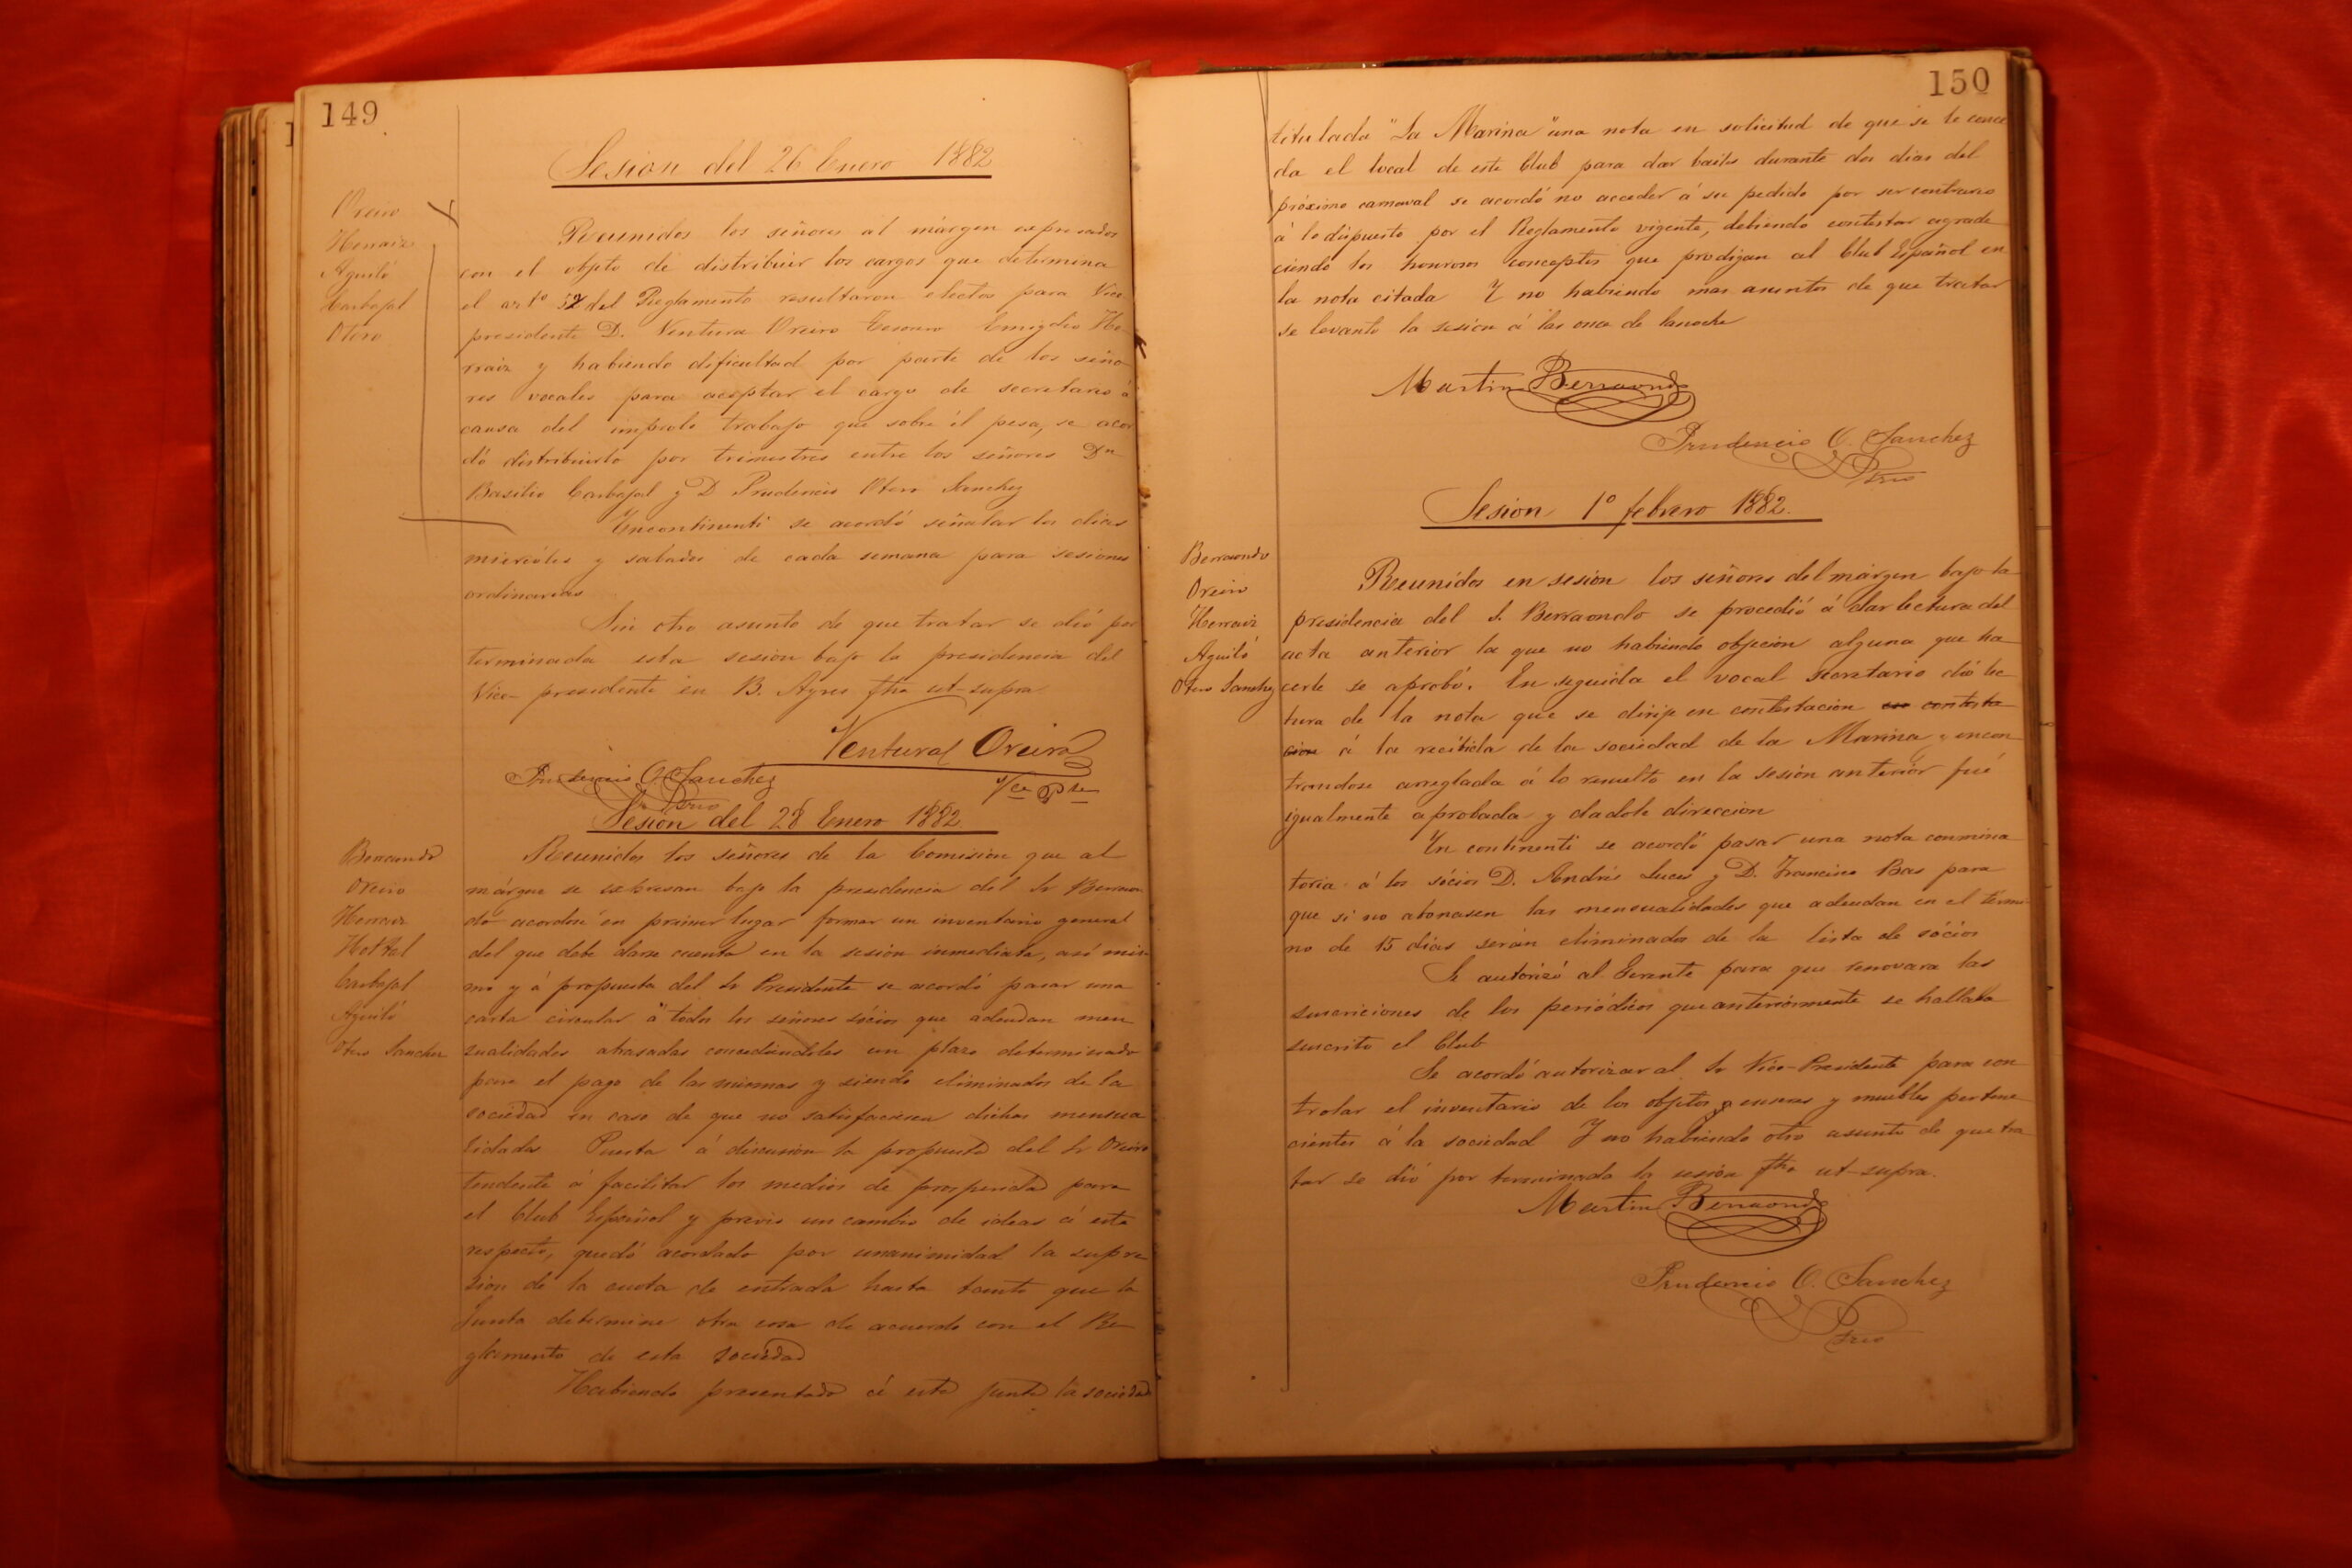 149
Sesion del 26 Enero 1882
Oreiro
Herraiz
Aguiló
Carbajal
Otero
Reunidos los señores al márgen expresados
con el objeto de distribuir los cargos que determina
el artº 52 del Reglamento resultaron electos para Vice
presidente D. Ventura Oreiro Tesorero Emigdio He-
rraiz y habiendo dificultad por parte de los seño-
res vocales para aceptar el cargo de secretario á
causa del ímprobo trabajo que sobre él pesa, se acor
dó distribuirlo por trimestres entre los señores Dn
Basilio Carbajal y D Prudencio Otero Sanchez
Incontinenti se acordó señalar los dias
miercoles y sabados de cada semana para sesiones
ordinarias
Sin otro asunto de que tratar se dió por
terminada esta sesion bajo la presidencia del
Vice-presidente en B. Ayres fha ut-supra
Ventura Oreiro
Vce Pte
Prudencio O. Sanchez
Srio
Sesion del 28 Enero 1882
Berraondo
Oreiro
Herraiz
Hostal
Carbajal
Aguiló
Otero Sanchez
Reunidos los señores de la Comision que al
márgen se expresan bajo la presidencia del Sr Berraon
do acordose en primer lugar formar un inventario general
del que debe darse cuenta en la sesión inmediata, así mis-
mo y á propuesta del Sr Presidente se acordó pasar una
carta circular á todos los señores sócios que adeudan men
sualidades atrasadas concediendoles un plazo determinado
para el pago de las mismas y siendo eliminados de la
sociedad en caso de que no satisfacieren dichas mensua
lidades Puesta á discusion la propuesta del Sr Oreiro
tendente á facilitar los medios de prosperidad para
el Club Español y previo un cambio de ideas á este
respecto, quedó acordado por unanimidad la supre
sion de la cuota de entrada hasta tanto que la
Junta determine otra cosa de acuerdo con el Re
glamento de esta sociedad
Habiendo presentado á esta junta la sociedad
150
titulada "La Marina" una nota en solicitud de que se le conce
da el local de este Club para dar bailes durante dos dias del
próximo carnaval se acordó no acceder á su pedido por ser contrario
á lo dispuesto por el Reglamento vigente, debiendo contestar agrade
ciendo los honrosos conceptos que prodigan al Club Español en
la nota citada Y no habiendo mas asuntos de que tratar
se levanto la sesion á las once de la noche
Martin Berraondo
Prudencio O. Sanchez
Srio
Sesion 1º febrero 1882.
Berraondo
Oreiro
Herraiz
Aguiló
Otero Sanchez
Reunidos en sesión los señores del márgen bajo la
presidencia del S. Berraondo se procedió á dar lectura del
acta anterior la que no habiendo objecion alguna que ha
cerle se aprobó. En seguida el vocal secretario dió lec
tura de la nota que se dirije en contestacion en contesta
cion á la recibida de la sociedad de la Marina y encon
trandose arreglada á lo resuelto en la sesión anterior fué
igualmente aprobada y dadole direccion
In continenti se acordó pasar una nota conmina
toria á los sócios D. Andrés Luces y D. Francisco Bas para
que si no abonasen las mensualidades que adeudan en el termi
no de 15 dias serán eliminados de la lista de sócios
Se autorizó al Gerente para que renovara las
suscriciones de los periódicos que anteriormente se hallaba
suscrito el Club
Se acordó autorizar al Sr Vice-Presidente para con
trolar el inventario de los objetos, enseres y muebles pertene
cientes á la sociedad Y no habiendo otro asunto de que tra
tar se dió por terminada la sesión fha ut-supra.
Martin Berraondo
Prudencio O. Sanchez
Srio